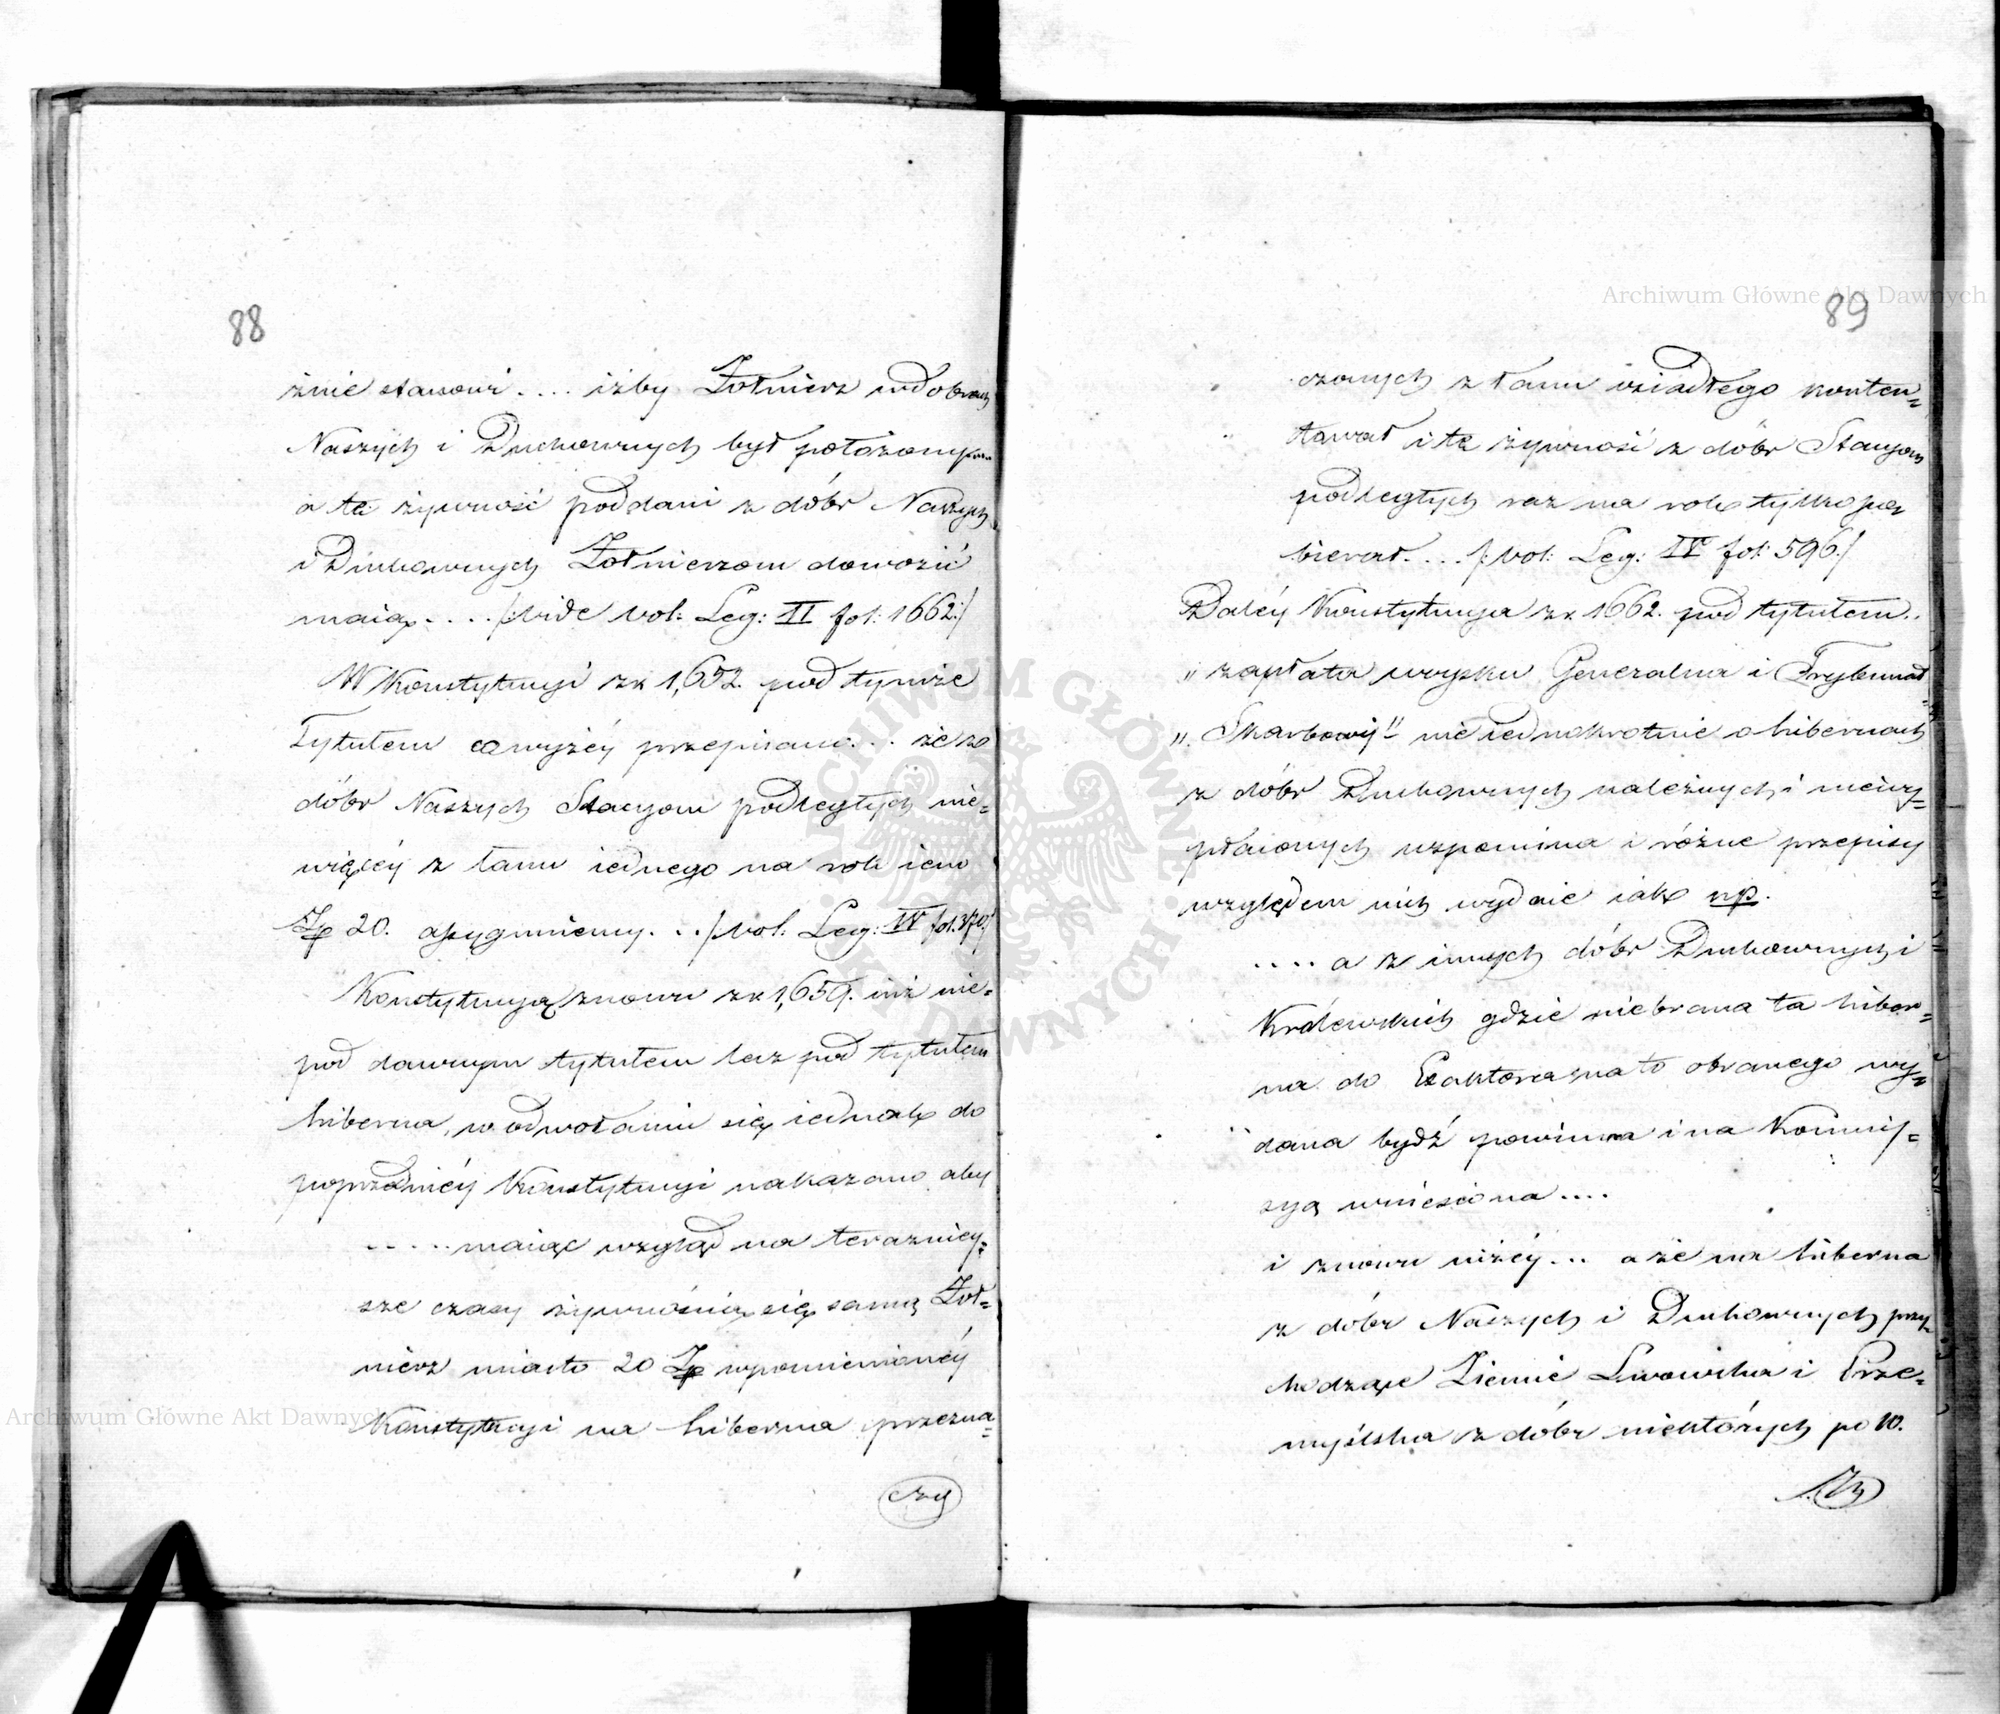 88
żnie stanowi .... iżby Żołnierz w dobrach
Naszych i Duchownych był położonym
a tę żywność poddani z dóbr Naszych
i Duchownych Żołnierzom dowozić
maią .... /:vide vol: Leg: II fol: 1662:/
W Konstytucyi z r. 1,652. pod tymże
Tytułem co wyżéy przepisano ... że z
dóbr Naszych Stacyom podległych nie=
więcéy z łanu iednego na rok ieno
Zp 20. assygnuiemy ... /:vol: Leg: IV fol: 370:/
Konstytucyą znowu z r. 1,659. iuż nie=
pod dawnym tytułem lecz pod tytułem
hiberna, w odwołaniu się iednak do
poprzedniéy Konstytucyi nakazano aby
..... maiąc wzgląd na terazniey=
sze czasy żywnością się samą Żoł=
nierz miasto 20 Zp wspomienionéy
Konstytucyi na hiberna przezna=
czy
89
czonych z łanu osiadłego konten=
tował i tę żywność z dóbr Stacyom
podległych raz na rok tylko po
bierał .... /:vol: Leg: IV fol: 596:/
Daléy Konstytucya z r. 1662. pod tytułem..
„zapłata woysku Generalna i Trybunał
„Skarbowy" nie iednokrotnie o hibernach
z dóbr Duchownych należnych i niewy=
płaconych wspomina i różne przepisy
względem nich wydaie iak np.
.... a z innych dóbr Duchownych i
Królewskich gdzie niebrana ta hiber=
na do Exaktora na to obranego wy=
dana bydź powinna i na Kommis=
syą wniesiona ....
i znowu niżéy ... a że na hiberna
z dóbr Naszych i Duchownych przy
chodzące Ziemie Lwowska i Prze=
myślska z dóbr niektórych po 10.
Archiwum Główne Akt Dawnych
Archiwum Główne Akt Dawnych
ARCHIWUM GŁÓWNE AKT DAWNYCH